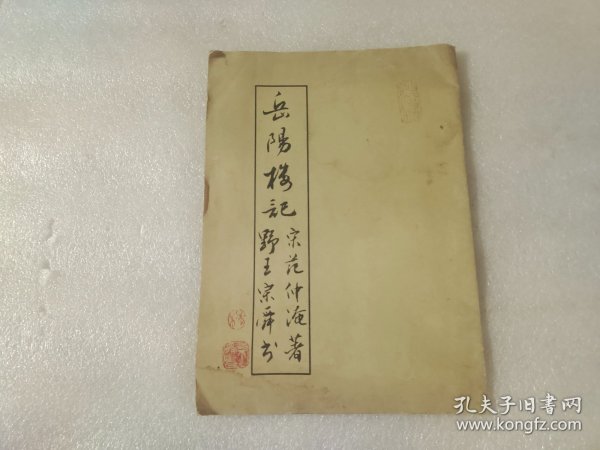 岳陽楼記
宋范仲淹著
野王宗舜书
孔夫子旧书网
www.kongfz.com